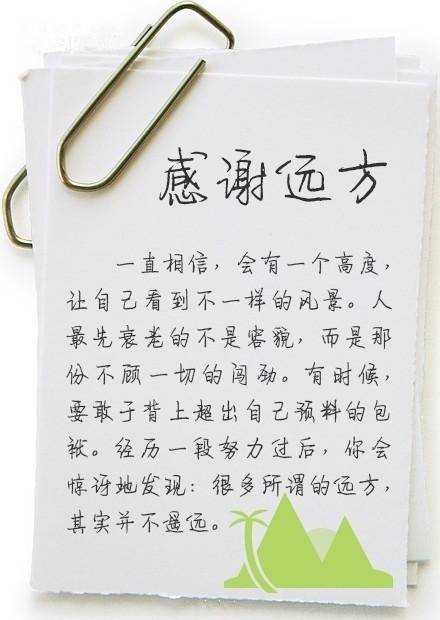 感谢远方
一直相信，会有一个高度，
让自己看到不一样的风景。人
最先衰老的不是容貌，而是那
份不顾一切的闯劲。有时候，
要敢于背上超出自己预料的包
袱。经历一段努力过后，你会
惊讶地发现：很多所谓的远方，
其实并不遥远。